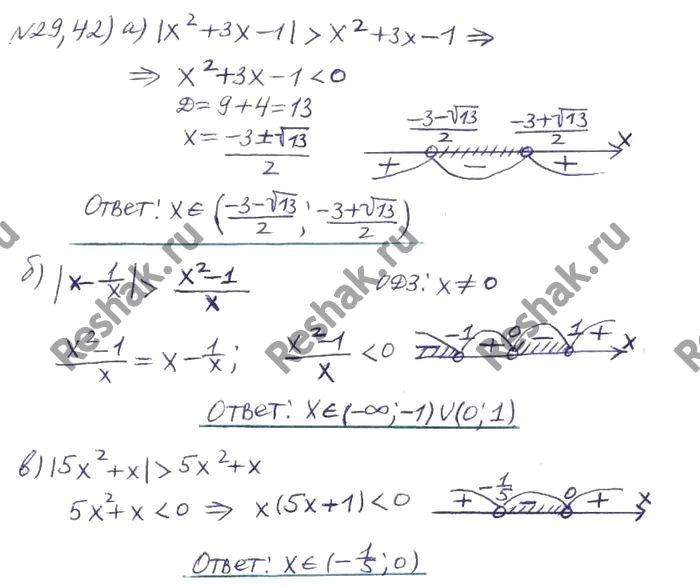 №29,42) а) |x²+3x-1| > x²+3x-1 ⇒
⇒ x²+3x-1<0
Д=9+4=13
x=(-3±√13)/2
(-3-√13)/2 (-3+√13)/2 x
+ - +
Ответ: x∈((-3-√13)/2; (-3+√13)/2)
б) |x-1/x|> (x²-1)/x ОДЗ: x≠0
(x²-1)/x = x-1/x; (x²-1)/x <0 - -1 + 0 - 1 + x
Ответ: x∈(-∞;-1)∪(0;1)
в) |5x²+x|>5x²+x
5x²+x<0 ⇒ x(5x+1)<0 + -1/5 - 0 + x
Ответ: x∈(-1/5;0)
Reshak.ru
Reshak.ru
Reshak.ru